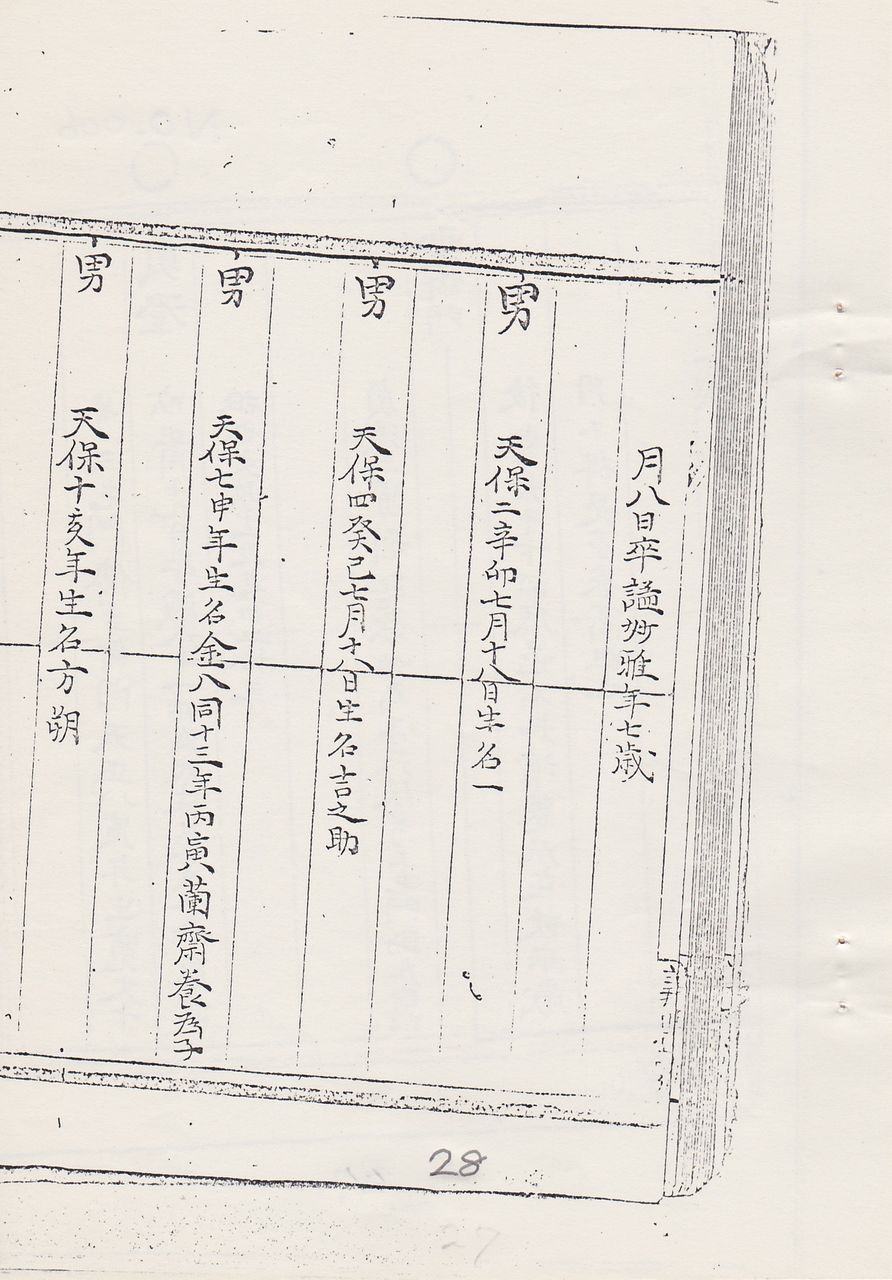 月八日卒諡妙雅年七歳
男 天保二辛卯七月十八日生名一
男 天保四癸巳七月十八日生名吉之助
男 天保七申年生名金八同十三年丙寅蘭齋養為子
男 天保十亥年生名方朔
28
27